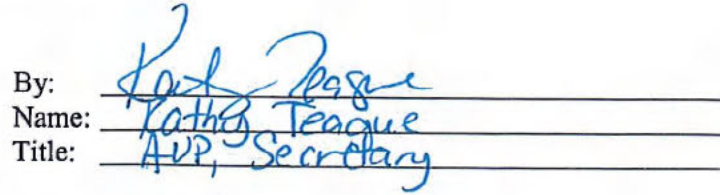 By: Kathy Teague
Name: Kathy Teague
Title: AVP, Secretary